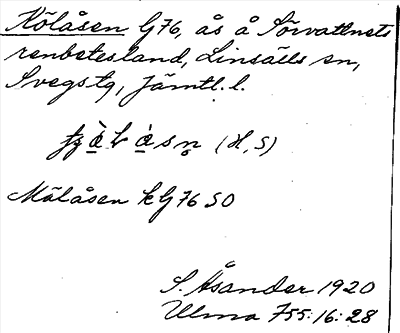 Kölåsen G76, ås å Sörvattnets
renbetesland, Linsälls sn,
Svegs tg, Jämtl. l.
(H, S)
Mälåsen k G 76 SO
S. Åsander 1920
Ulma 755:16:28